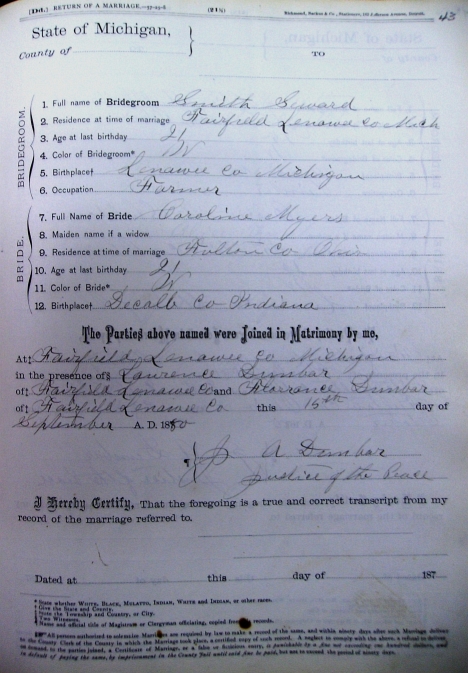 [Dd.] RETURN OF A MARRIAGE.
(218)
43
State of Michigan,
County of
TO
BRIDEGROOM.
1. Full name of Bridegroom Smith Seward
2. Residence at time of marriage Fairfield Lenawee Co Mich
3. Age at last birthday 21
4. Color of Bridegroom* W
5. Birthplace† Lenawee Co Michigan
6. Occupation Farmer
BRIDE.
7. Full Name of Bride Caroline Myers
8. Maiden name if a widow
9. Residence at time of marriage Fulton Co Ohio
10. Age at last birthday 21
11. Color of Bride* W
12. Birthplace† Decalb Co Indiana
The Parties above named were Joined in Matrimony by me,
At‡ Fairfield Lenawee Co Michigan
in the presence of§ Lawrence Dunbar
of‡ Fairfield Lenawee Co and Florrance Dunbar
of‡ Fairfield Lenawee Co this 15th day of
September A. D. 1880
A Dunbar
Justice of the Peace
I Hereby Certify, That the foregoing is a true and correct transcript from my
record of the marriage referred to.
Dated at this day of 187
* State whether WHITE, BLACK, MULATTO, INDIAN, WHITE and INDIAN, or other races.
† Give the State and County.
‡ State the Township and County, or City.
§ Two Witnesses.
Name and official title of Magistrate or Clergyman officiating, copied from records.
All persons authorized to solemnize Marriages are required by law to make a record of the same, and within ninety days after each Marriage deliver
to the County Clerk of the County in which the Marriage took place, a certified copy of such record. A neglect to comply with the above, a refusal to deliver
on demand to the parties joined, a Certificate of Marriage, or a false or fictitious entry, is punishable by a fine not exceeding one hundred dollars, and
in default of paying the same, by imprisonment in the County Jail until said fine be paid, but not to exceed the period of ninety days.